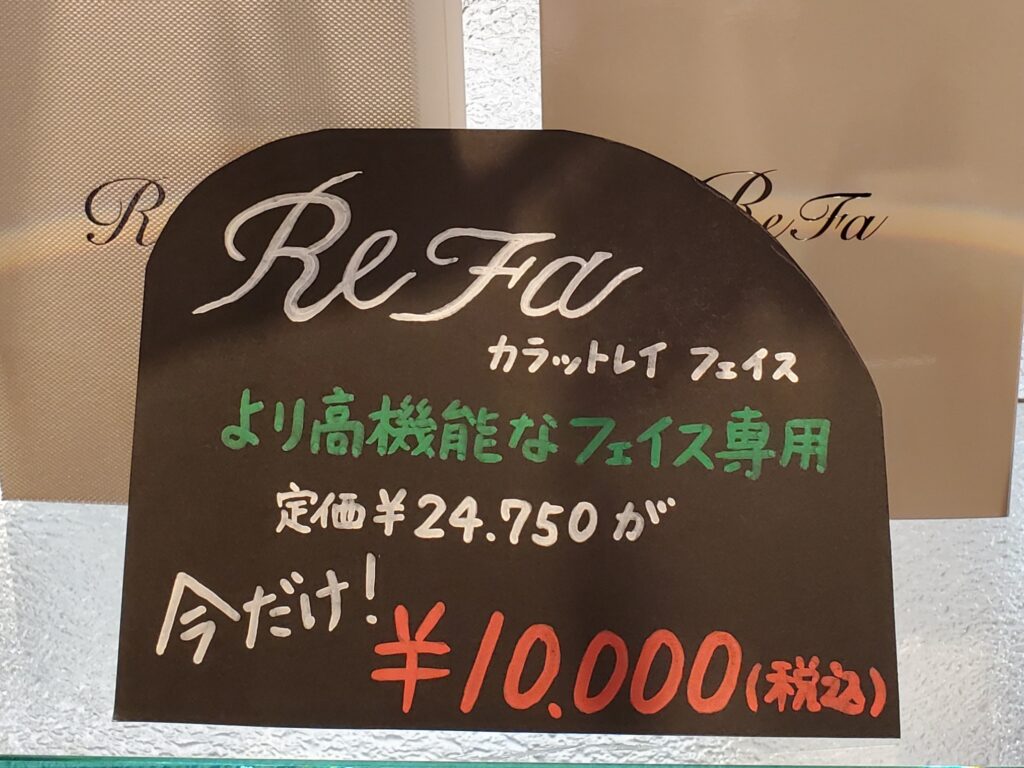 ReFa
ReFa
カラットレイ フェイス
より高機能なフェイス専用
定価¥24.750が
今だけ!
¥10.000(税込)